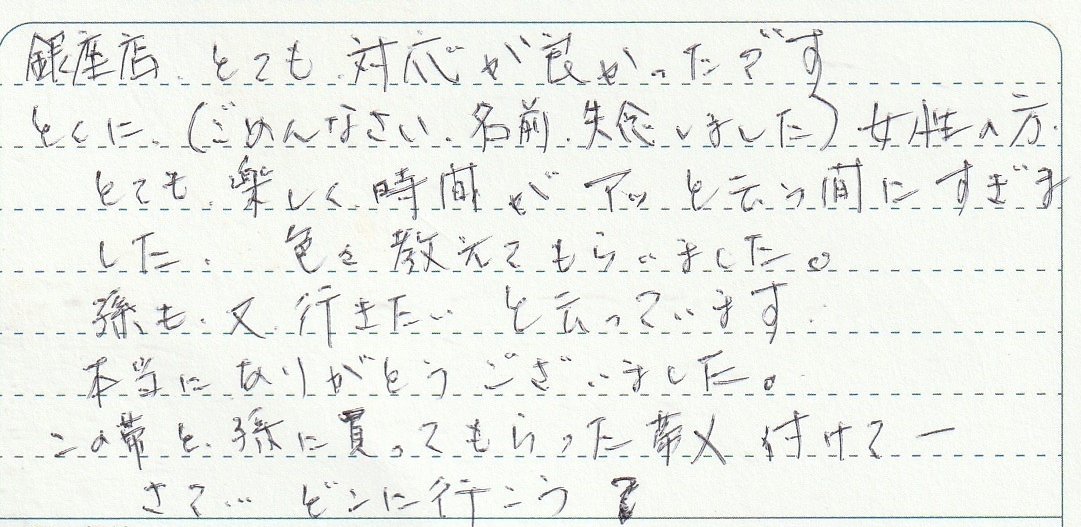 銀座店、とても対応が良かったです
とくに、(ごめんなさい、名前、失念しました)女性の方、
とても、楽しく、時間が アッ と云う間にすぎま
した、 色々教えてもらいました。
孫も、又、行きたい と云っています、
本当にありがとうございました。
この帯と、孫に買ってもらった帯〆 付けてー
さて… どこに行こう?